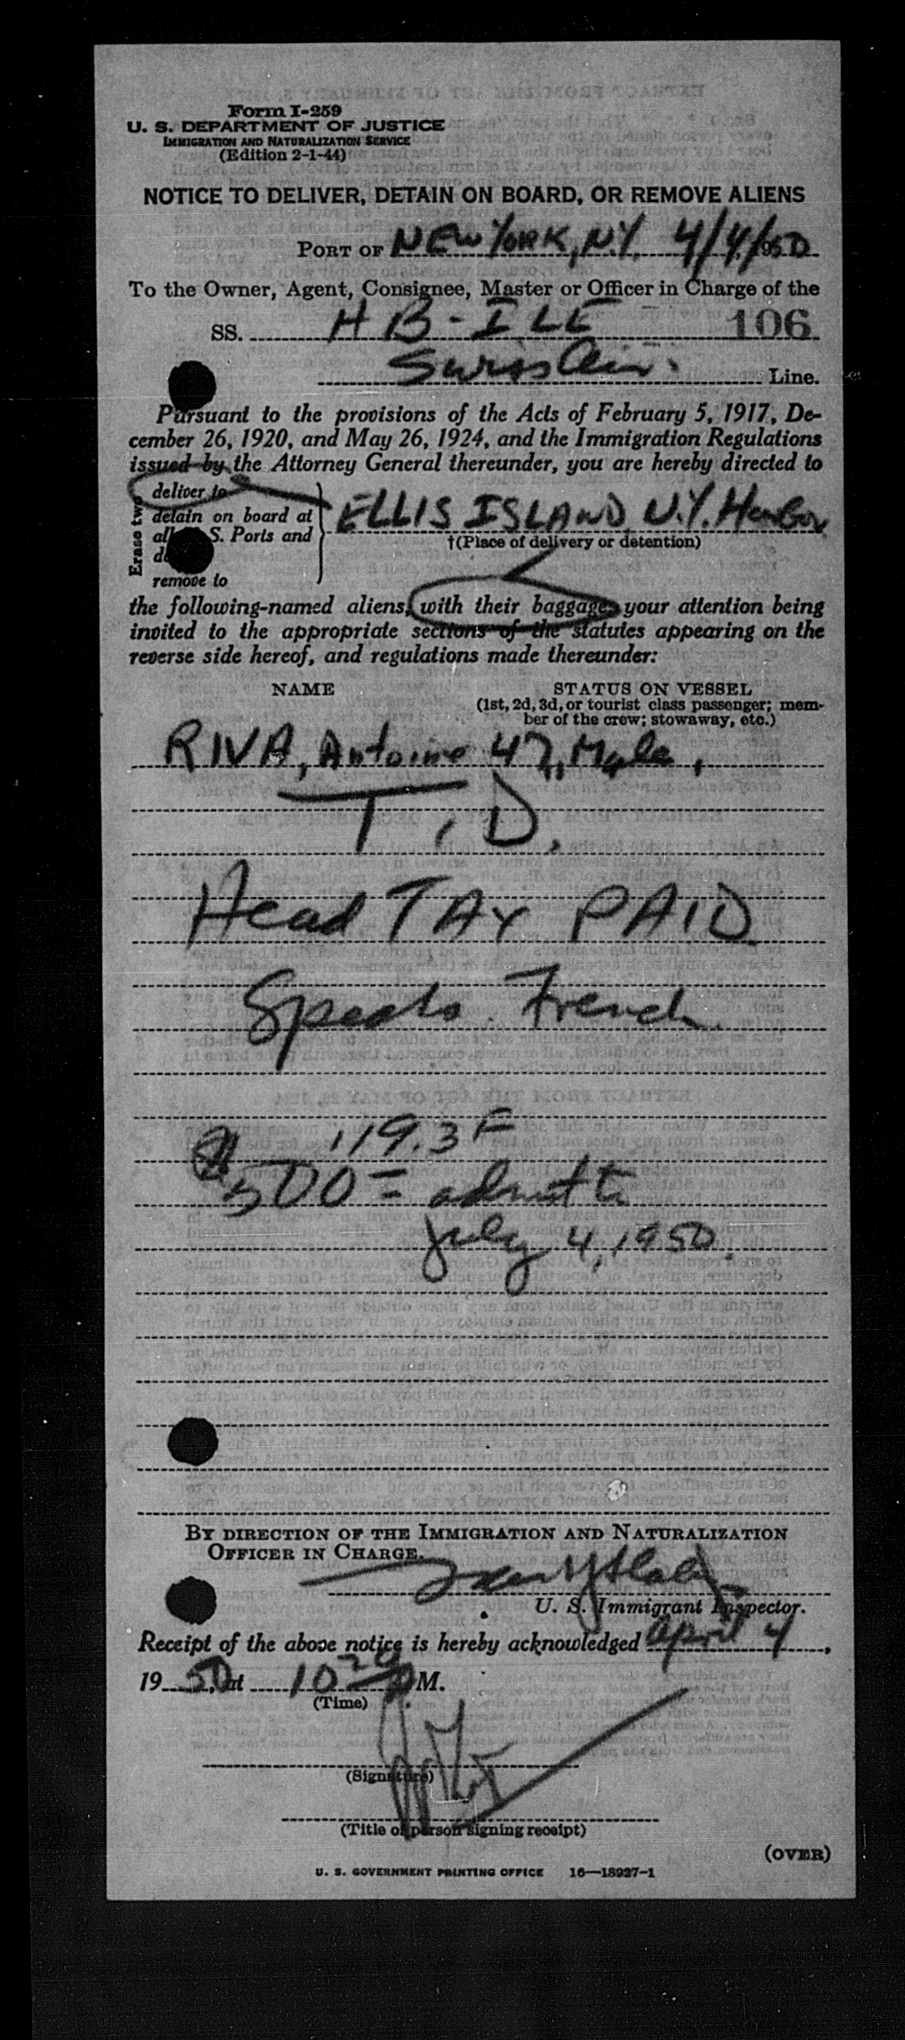 Form I-259
U. S. DEPARTMENT OF JUSTICE
IMMIGRATION AND NATURALIZATION SERVICE
(Edition 2-1-44)
NOTICE TO DELIVER, DETAIN ON BOARD, OR REMOVE ALIENS
PORT OF NEW YORK, N.Y. 4/4/1950
To the Owner, Agent, Consignee, Master or Officer in Charge of the
SS. HB-ILE 106
Swiss Air Line.
Pursuant to the provisions of the Acts of February 5, 1917, De-
cember 26, 1920, and May 26, 1924, and the Immigration Regulations
issued by the Attorney General thereunder, you are hereby directed to
Erase two
deliver to
detain on board at
all U. S. Ports and
remove to
ELLIS ISLAND N.Y. Harbor
†(Place of delivery or detention)
the following-named aliens, with their baggage, your attention being
invited to the appropriate sections of the statutes appearing on the
reverse side hereof, and regulations made thereunder:
NAME STATUS ON VESSEL
(1st, 2d, 3d, or tourist class passenger; mem-
ber of the crew; stowaway, etc.)
RIVA, Antoine 47, Male,
T.D.
Head TAX PAID
Speaks French
119.3F
500= admit to
July 4, 1950.
BY DIRECTION OF THE IMMIGRATION AND NATURALIZATION
OFFICER IN CHARGE.
U. S. Immigrant Inspector.
Receipt of the above notice is hereby acknowledged April 4,
1950, at 10 M.
(Time)
(Signature)
(Title of person signing receipt)
(OVER)
U. S. GOVERNMENT PRINTING OFFICE 16—18927-1